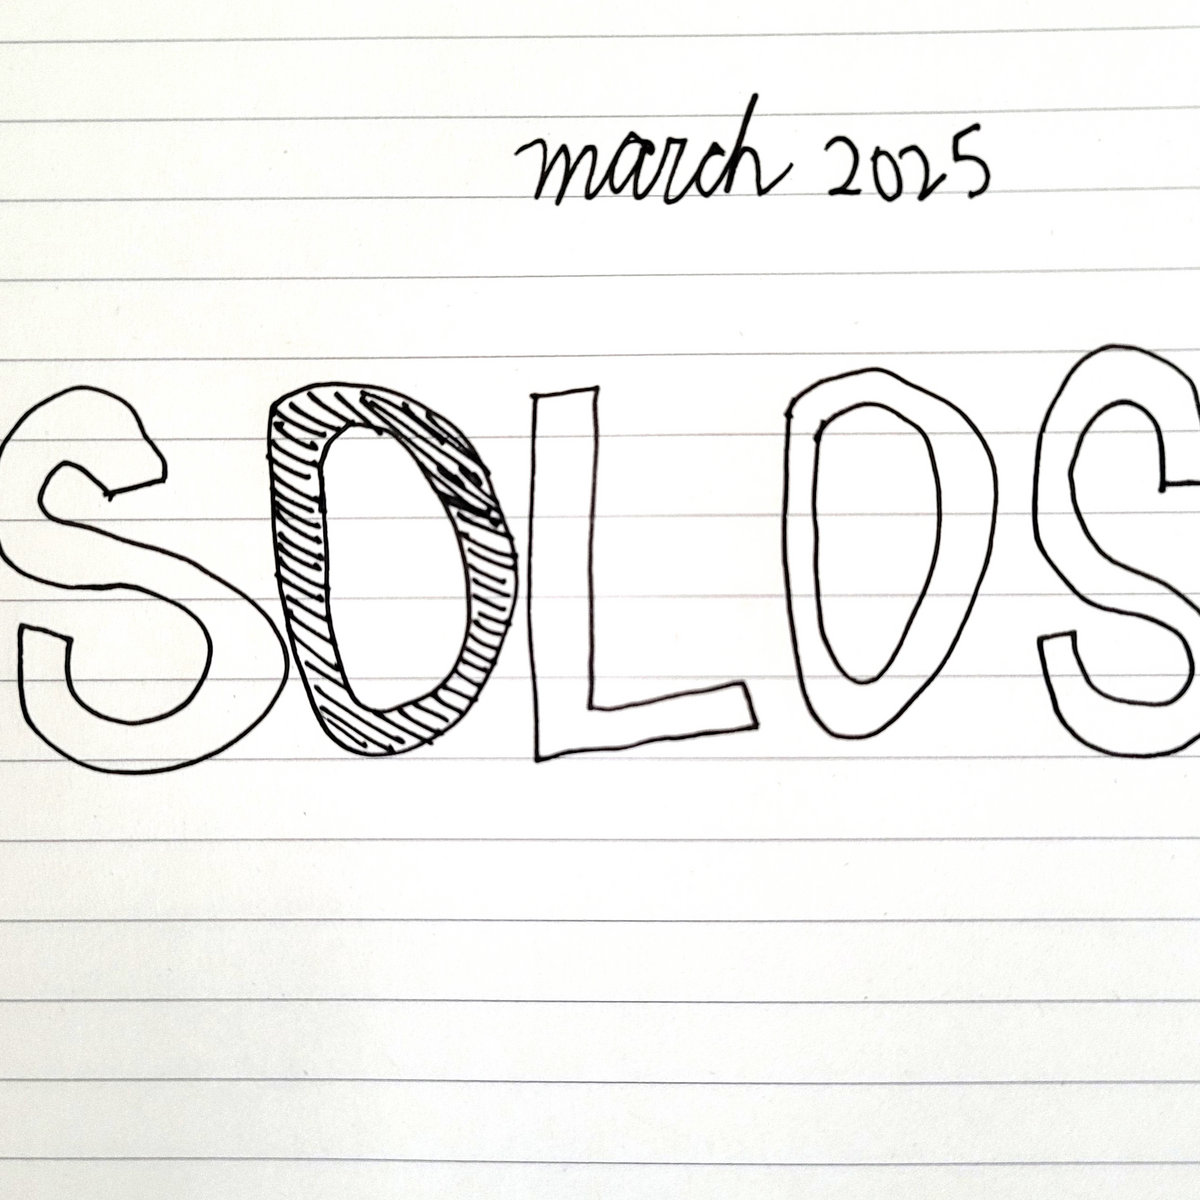 march 2025
SOLOS